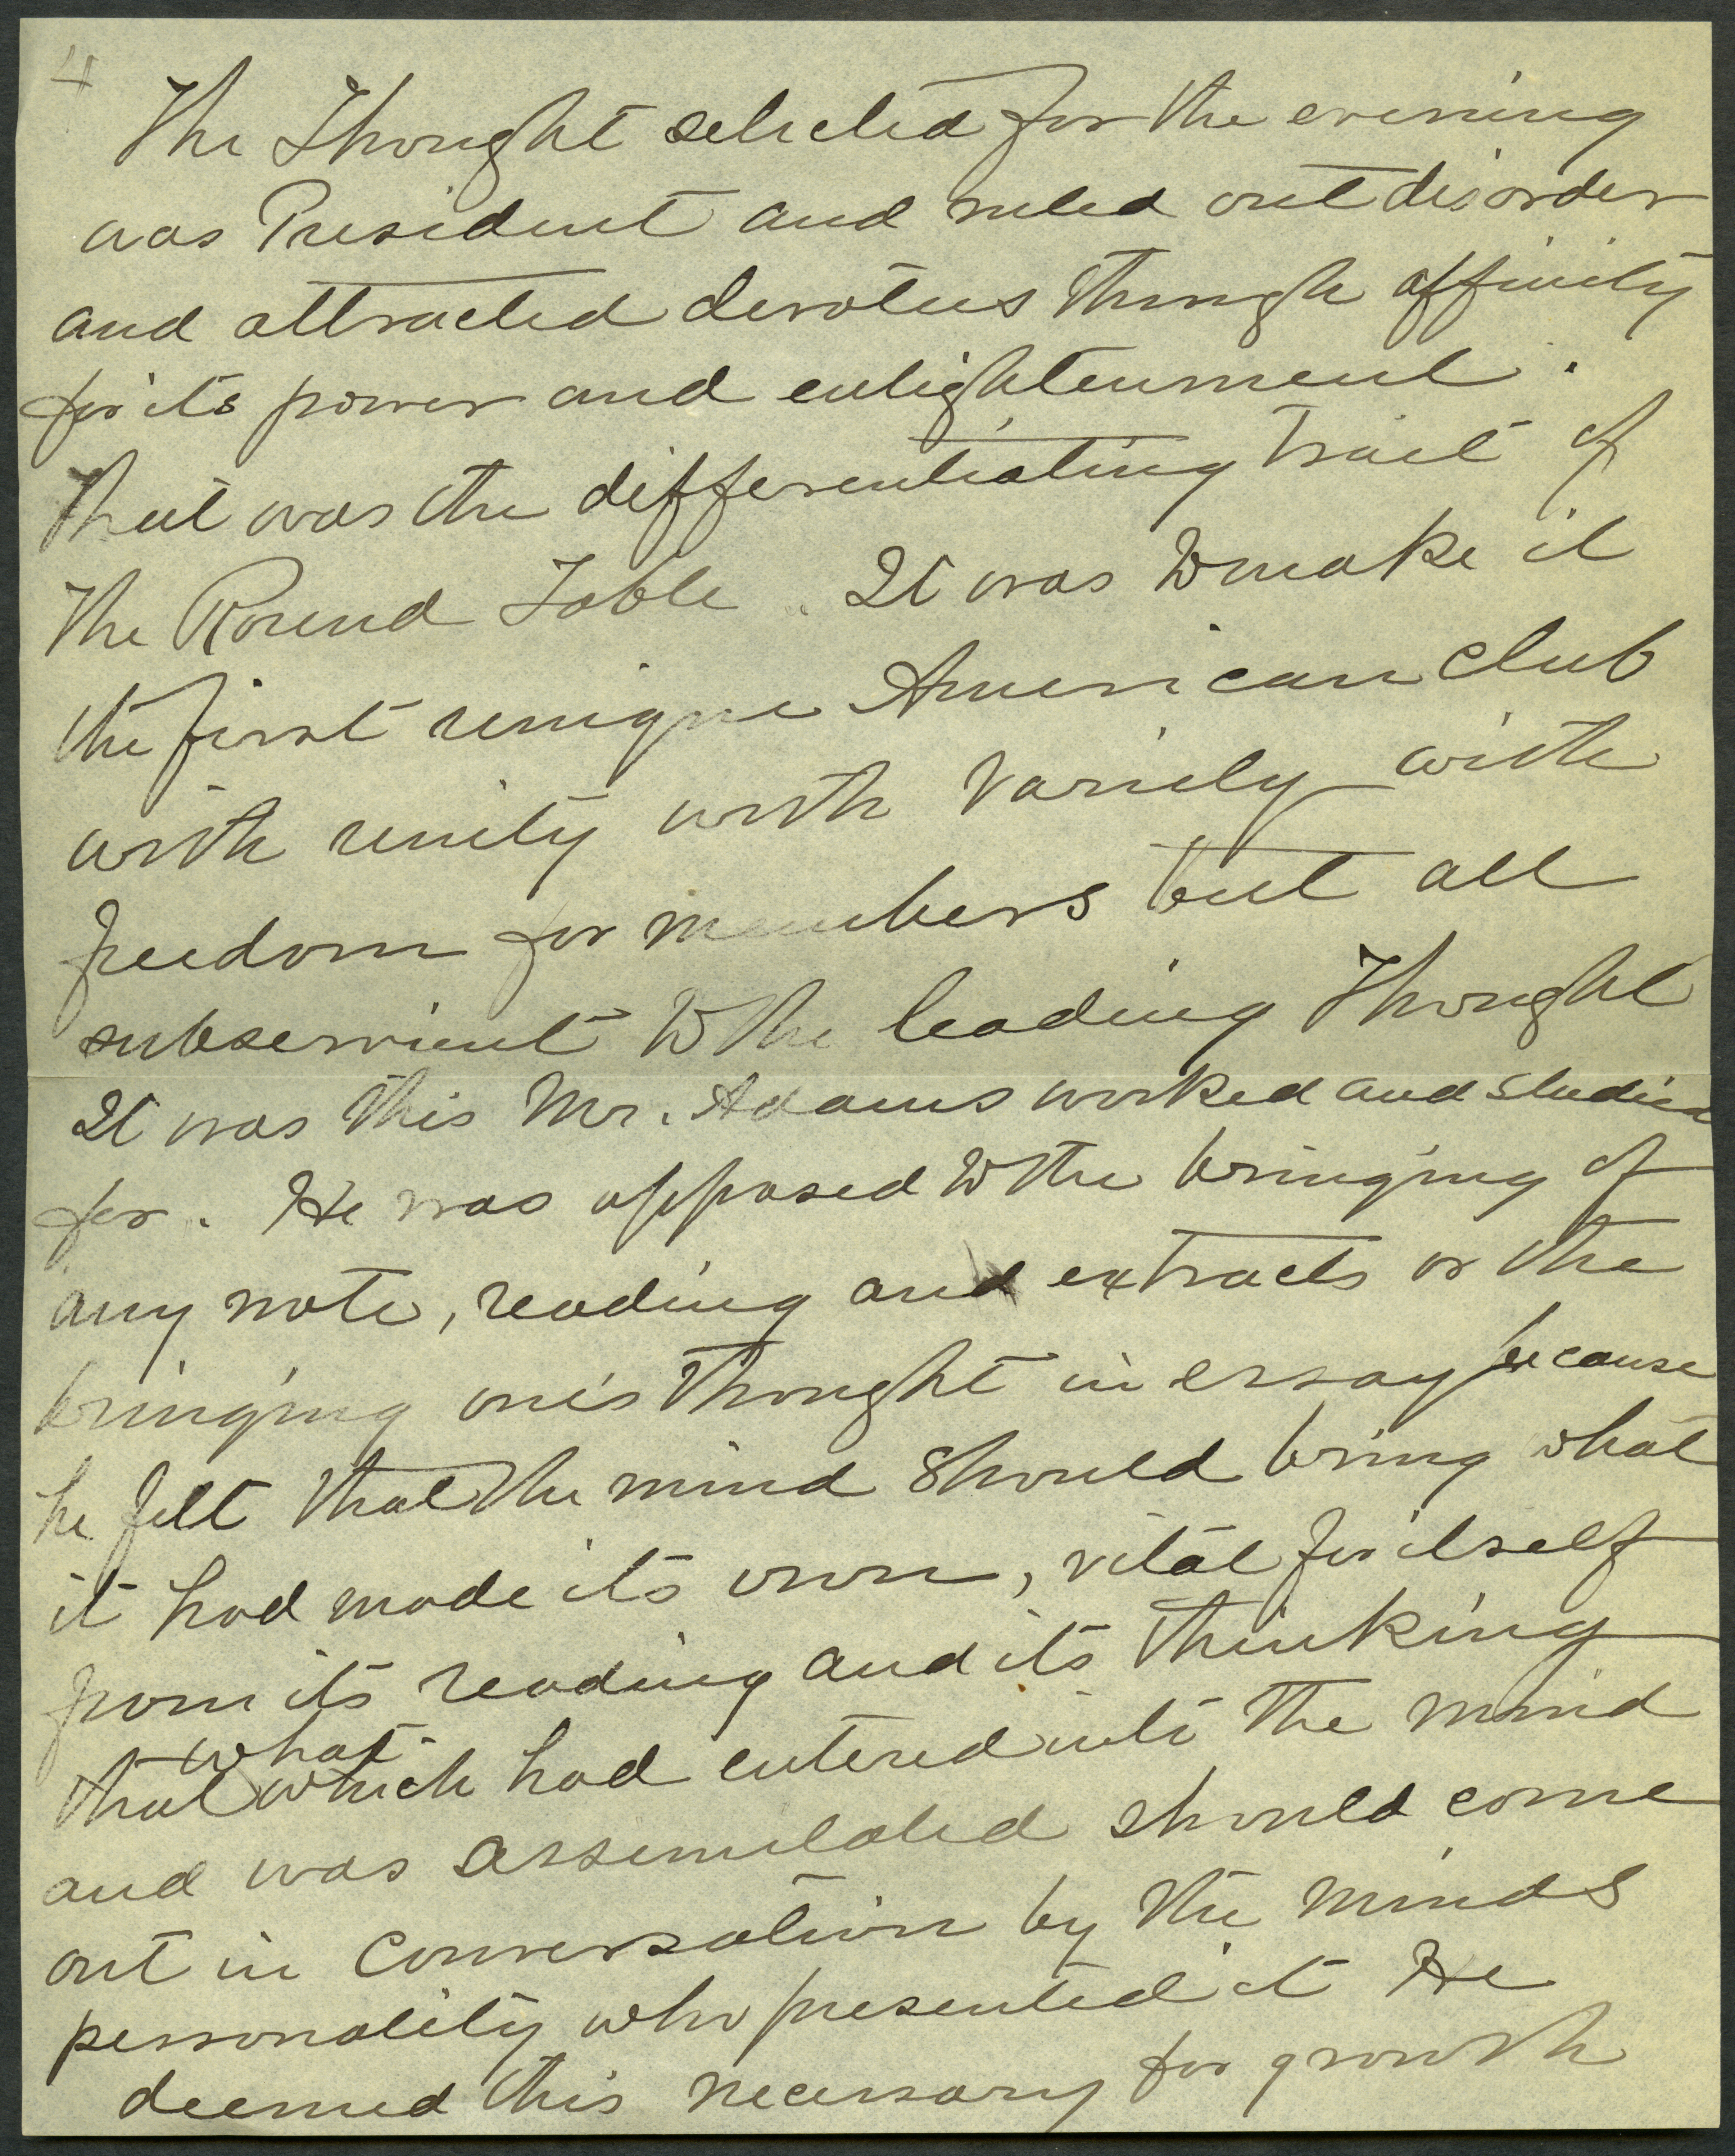 4
The Thought selected for the evening
was President and ruled out disorder
and attracted devotees through affinity
for its power and enlightenment.
That was the differentiating trait of
the Round Table. It was to make it
the first unique American club
with unity with variety with
freedom for members but all
subservient to the leading Thought
It was this Mr. Adams worked and studied
for. He was opposed to the bringing of
any note, reading and extracts or the
bringing one's thought in essay because
he felt that the mind should bring what
it had made its own, vital for itself
from its reading and its thinking
what
that which had entered into the mind
and was assimilated should come
out in conversation by the minds
personality who presented it He
deemed this necessary for growth